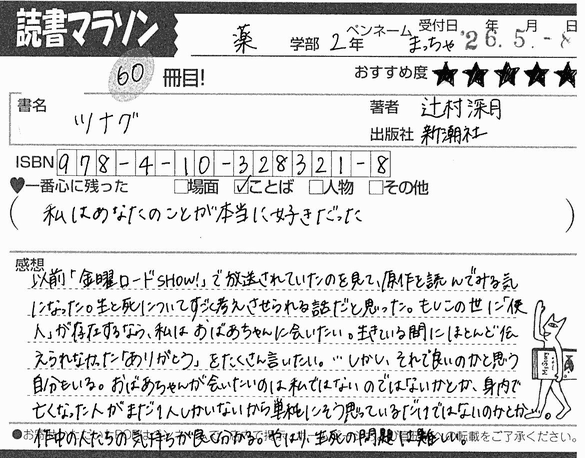 読書マラソン
薬 学部 2年 ペンネーム まっちゃ 受付日 '26.5.-8 年 月 日
60 冊目! おすすめ度 ★★★★★
書名 ツナグ 著者 辻村深月
出版社 新潮社
ISBN 978-4-10-328321-8
♥一番心に残った □場面 ☑ことば □人物 □その他
(私はあなたのことが本当に好きだった)
感想
以前「金曜ロードSHOW!」で放送されていたのを見て、原作を読んでみる気
になった。生と死についてすごく考えさせられる話だと思った。もしこの世に「使
人」が存在するなら、私はおばあちゃんに会いたい。生きている間にほとんど伝
えられなかった「ありがとう」をたくさん言いたい。…しかし、それで良いのかと思う
自分もいる。おばあちゃんが会いたいのは私ではないのではないかとか、身内で
亡くなった人がまだ1人しかいないから単純にそう思っているだけではないのかとか。
作中の人たちの気持ちが良く分かる。やはり、生死の問題は難しい。
の転載をご了承ください。